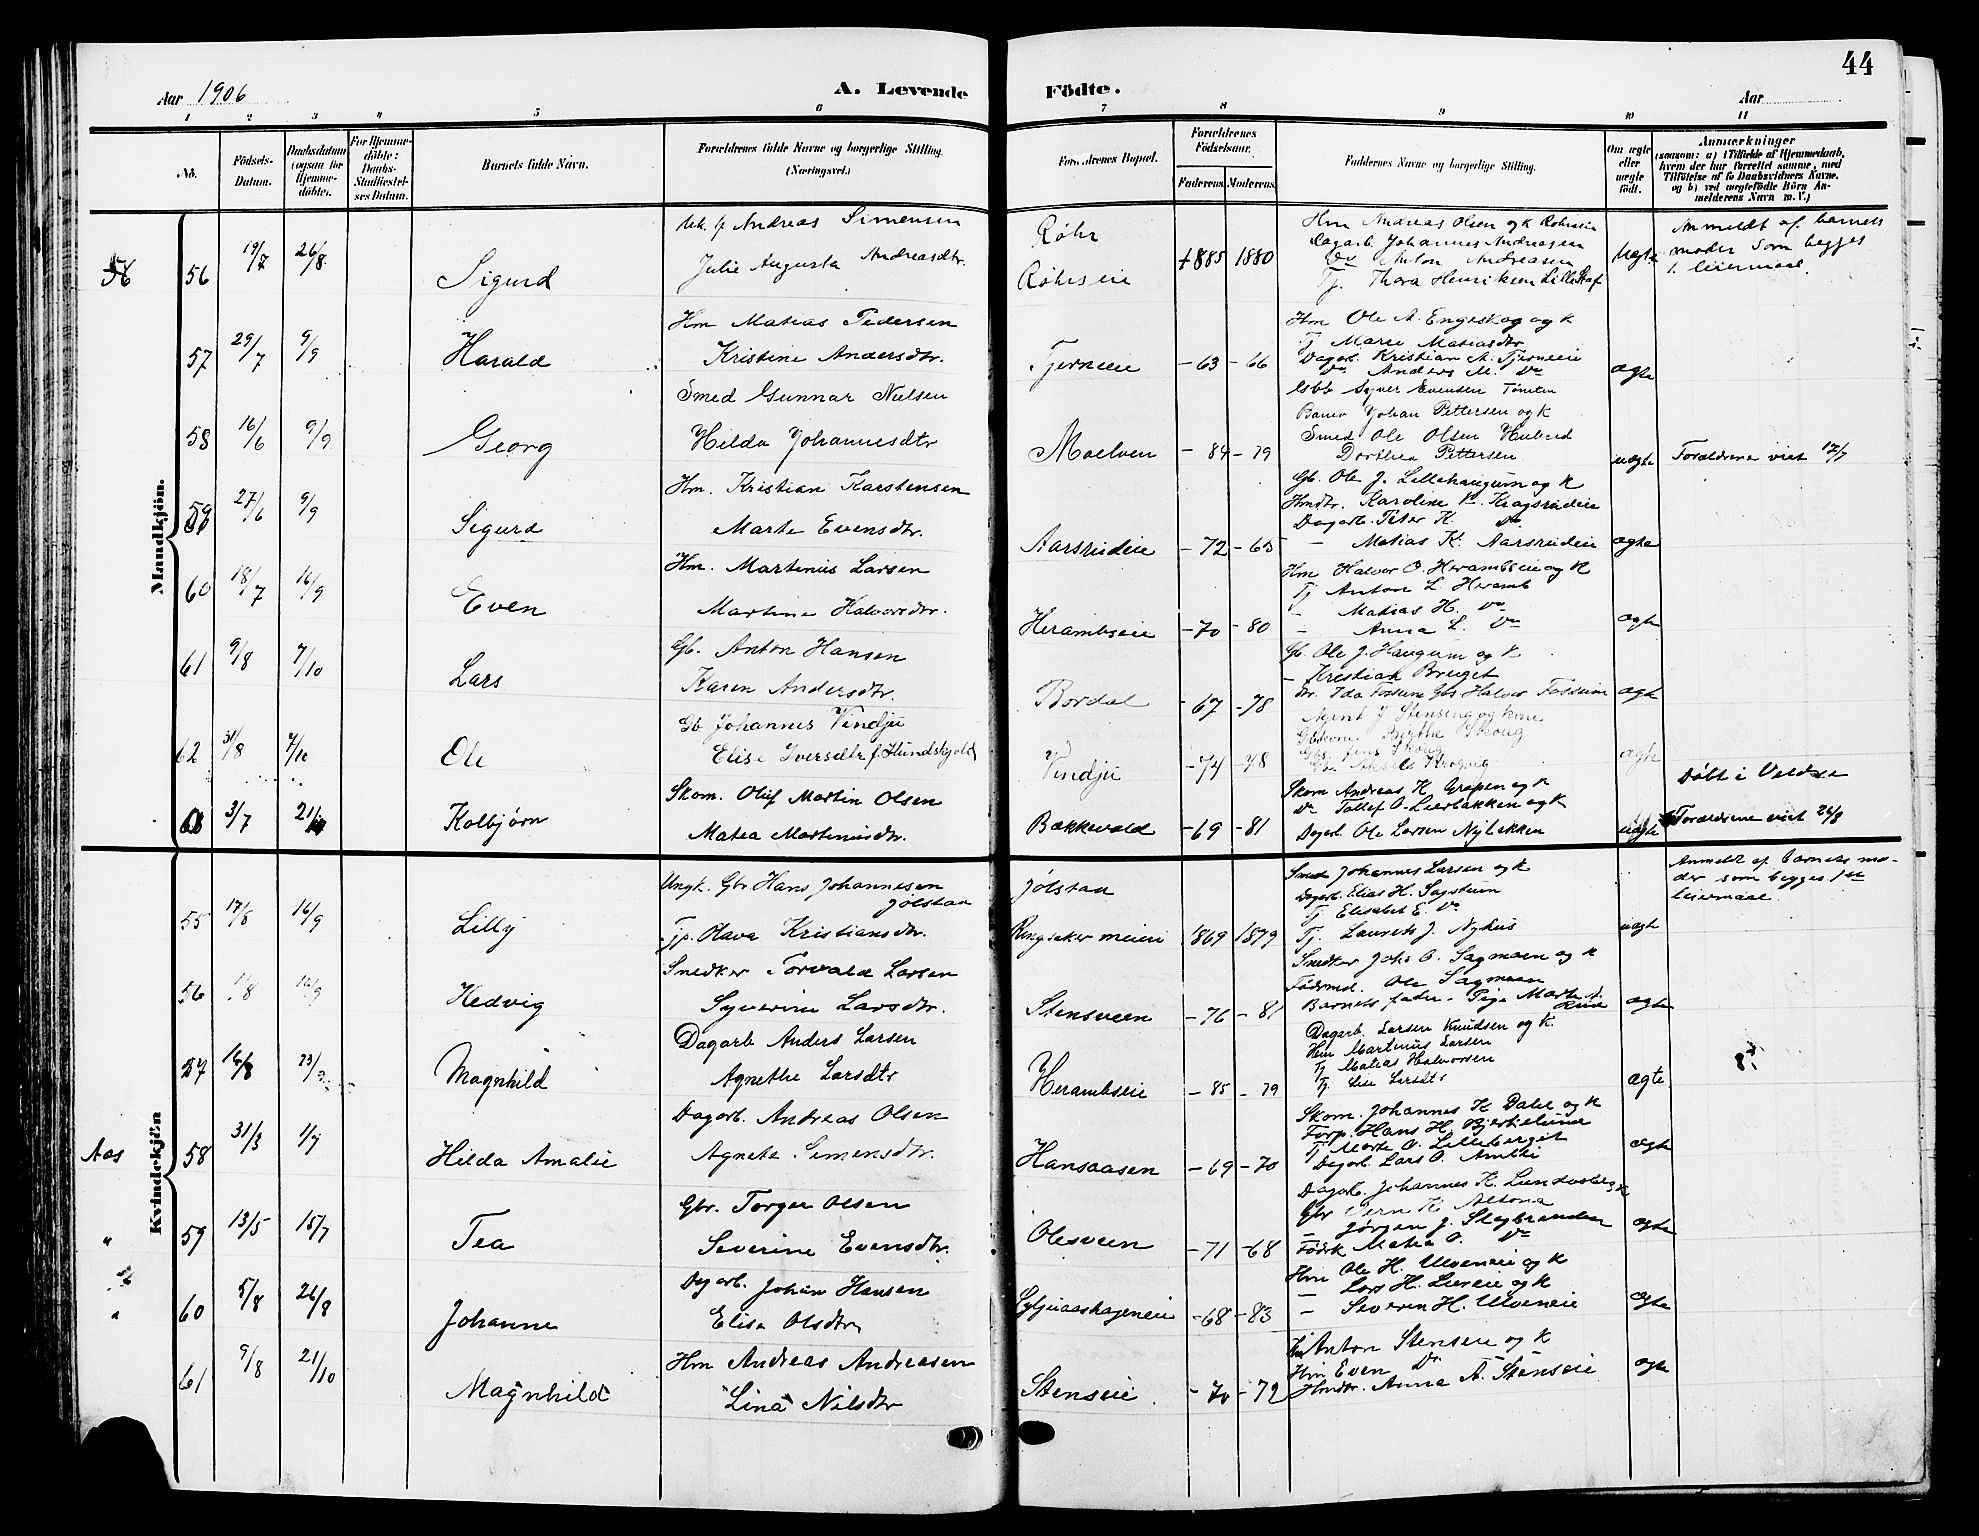 44
Aar 1906
A. Levende
Födte.
Aar
1 2 3 4 5 6 7 8 9 10 11
No.
Födsels-Datum.
Daabsdatum (ogsaa for Hjemmedöbte).
For Hjemmedöbte: Daabs-Stadfæstelses Datum.
Barnets fulde Navn.
Forældrenes fulde Navne og borgerlige Stilling. (Næringsvei.)
Forældrenes Bopæl.
Forældrenes Födselsaar.
Faderens. Moderens.
Faddernes Navne og borgerlige Stilling.
Om ægte eller uægte födt.
Anmærkninger
(saasom: a) i Tilfælde af Hjemmedaab, hvem der har forrettet samme, med Tilföielse af to Daabsvidners Navne, og b) ved uægtefödte Börn Anmelderens Navn m. V.)
Mandkjön.
56 19/7 26/8 Sigurd
Andreas Simensen
Julie Augusta Andreasdtr.
Røhr
Røhrseie
1885 1880
Hm Andreas Olsen og K Røhrseie
Dagarb. Johannes Andreasen
Do Anton Andreasen
Tj. Thora Henriksen Lille Staf
Uægte
Anmeldt af barnets
moder som begges
1. leiermaal.
57 29/7 9/9 Harald
Hm Matias Pedersen
Kristine Andersdtr.
Tjerneie
-63 -66
Hm Ole A. Engeskog og K
Tj Marie Matiasdtr
Dagarb. Kristian A. Tjerneie
Do Anders M. Do
ægte
58 16/6 9/9 Georg
Smed Gunnar Nielsen
Hilda Johannesdtr
Moelven
-84 -79
Syver Evensen Tømten
Johan Pettersen og K
Smed Ole Olsen
Dorthea Pettersen
uægte
Forældrene viet 12/7
59 27/6 9/9 Sigurd
Hm. Kristian Karstensen
Marte Evensdtr.
Aarsrudeie
-72 -65
Gb. Ole J. Lillehaugum og K
Hmdtr. Karoline K. Kragsrudeie
Dagarb. Peter K. Do
- Matias K. Aarsrudeie
ægte
60 18/7 16/9 Even
Hm. Martinius Larsen
Martine Halvorsdtr.
Herambseie
-70 -80
Hm Halvor O. Herambseie og K
Tj Anton L Heramb
- Matias H. Do
- Anna L. Do
ægte
61 9/8 7/10 Lars
Gb. Anton Hansen
Karen Andersdtr.
Bordal
-67 -78
Gb. Ole J. Haugum og K
- Kristian Breuget
Ida Fossum Gbs Halvor Fossum
ægte
62 31/8 7/10 Ole
Gb Johannes Vindju
Elise Iversdtr f. Hundskjold
Vindju
-74 -78
Agent J Stenseng og kone
Gbkone Birthe Skoug
Gbs Jens Skoug
ægte
Døbt i Veldre
3/7 21/10 Kolbjørn
Skom. Oluf Martin Olsen
Matea Martiniusdtr.
Bækkevold
-69 -81
Skom Andreas K Grapen og K
Do Tollef O. Leerbakken og K
Dagarb. Ole Larsen Nybakken
uægte
Forældrene viet 26/8
Kvindekjön
55 17/8 16/9 Lilly
Ungk. Gbr Hans Johannesen
Jølstan
Tjp. Olava Kristiansdtr.
Jølstan
Ringsaker meieri
1869 1879
Smed Johannes Larsen og K
Dagarb. Elias H. Sagstuen
Tj. Elisabet E. Do
Tj. Laurits J. Nyhus
uægte
Anmeldt af barnets mo-
der som begges 1ste
leiermaal.
56 16/9 Hedvig
Snedker Torvald Larsen
Syverine Larsdtr.
Stensveen
-76 -81
Snedker Johs O. Sagmoen og K
Ole Sagmoen
Barnets fader - Pige Marte A.
Rud
ægte
57 16/8 23/9 Magnhild
Dagarb Anders Larsen
Agnethe Larsdtr
Herambseie
-85 -79
Dagarb. Larsen Knudsen og K.
Hm Martinius Larsen
Tj Matias Halvorsen
Tj. Lise Larsdtr
ægte
Aas 58 31/3 1/7 Hilda Amalie
Dagarb. Andreas Olsen
Agnete Simensdtr.
Hansaasen
-69 -70
Skom. Johannes K Dalie og K
Forp. Hans H. Bjerkelund
Tj Marte O. Lilleberget
Dagarb. Lars O. Amlie
ægte
" 59 13/5 15/7 Tea
Gbr. Torger Olsen
Severine Evensdtr.
Olesveen
-71 -68
Dagarb. Johannes K. Lundesberg K
Gbr K Altona
- Jørgen J. Stegbranden
Matea O. Do
ægte
" 60 5/8 26/8 Johanne
Dagarb. Johan Hansen
Elise Olsdtr
-68 -83
Hm Ole H. Ulveneie og K
- Lars H. Lieveie og K
- Severin H. Ulveneie
ægte
61 9/8 21/10 Magnhild
Hm Andreas Andreasen
Lina Nilsdtr
Stenseie
-70 -72
Hm Anton Stenseie og K
Hm Even Do
Hmdtr. Anna A. Stenseie
ægte